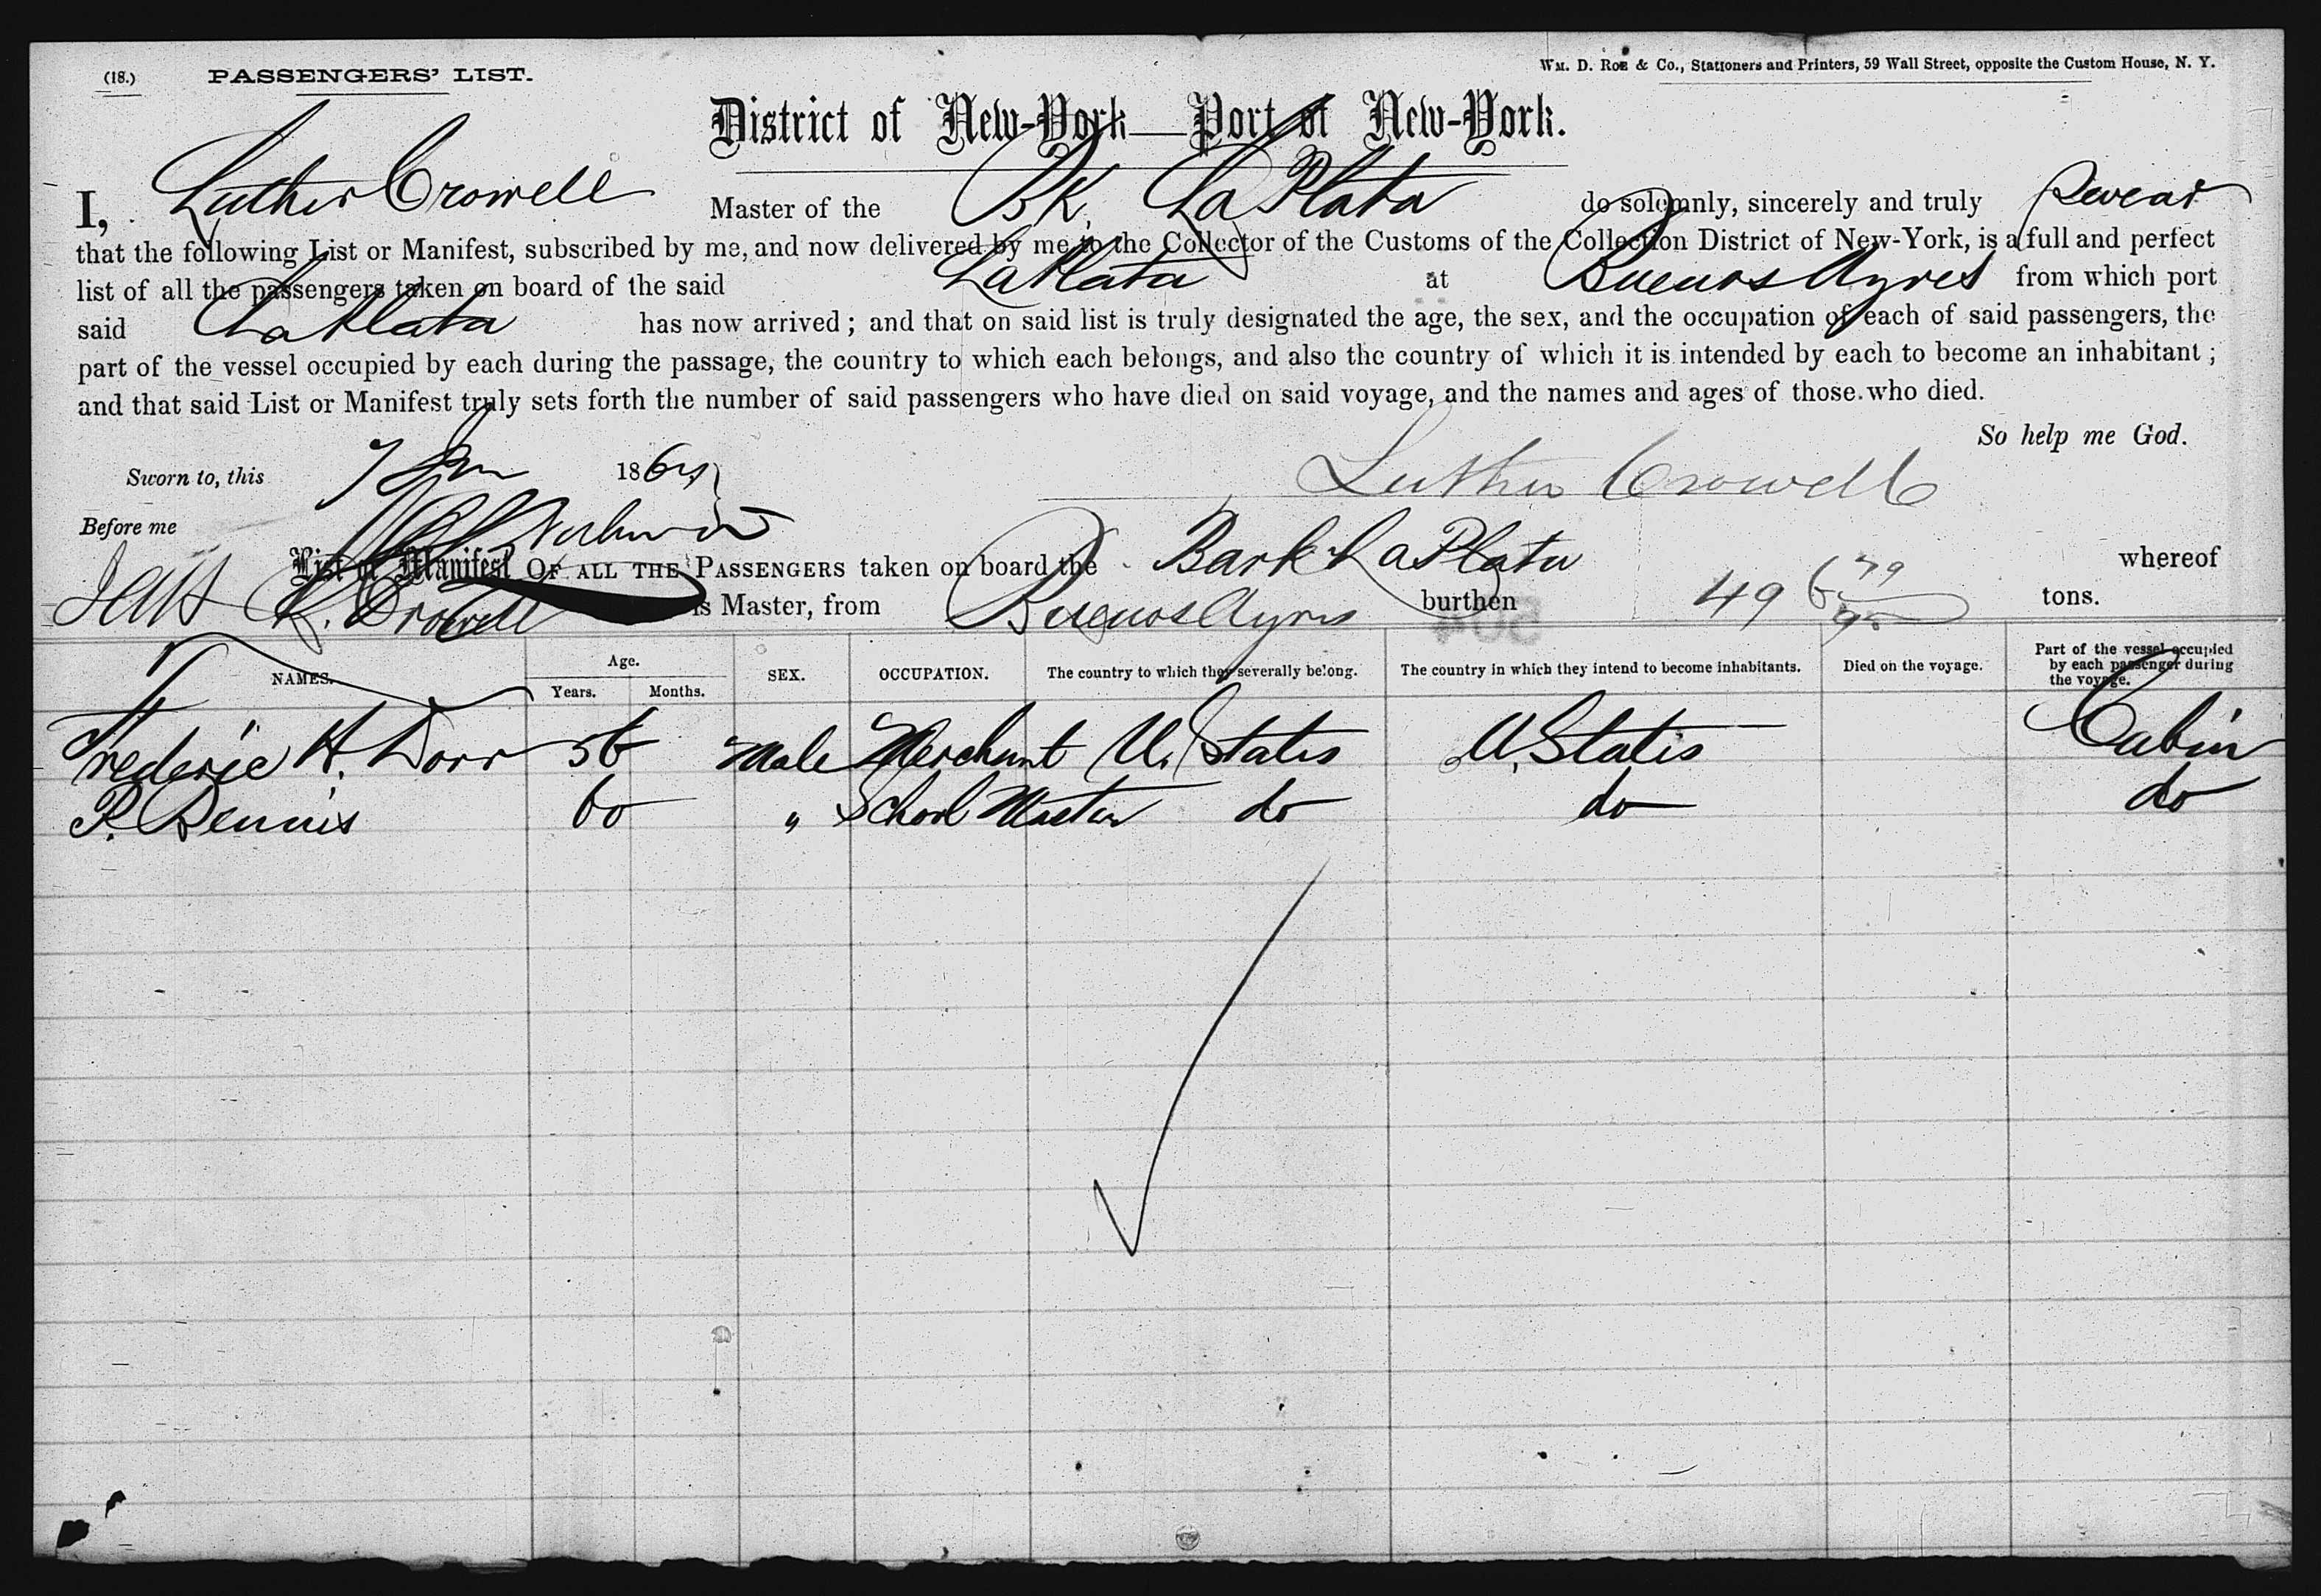 (18.) PASSENGERS' LIST.
WM. D. ROE & Co., Stationers and Printers, 59 Wall Street, opposite the Custom House, N. Y.
District of New-York—Port of New-York.
I, Luther Crowell Master of the Bk. La Plata do solemnly, sincerely and truly swear
that the following List or Manifest, subscribed by me, and now delivered by me to the Collector of the Customs of the Collection District of New-York, is a full and perfect
list of all the passengers taken on board of the said La Plata at Buenos Ayres from which port
said La Plata has now arrived; and that on said list is truly designated the age, the sex, and the occupation of each of said passengers, the
part of the vessel occupied by each during the passage, the country to which each belongs, and also the country of which it is intended by each to become an inhabitant;
and that said List or Manifest truly sets forth the number of said passengers who have died on said voyage, and the names and ages of those who died.
So help me God.
Sworn to, this 7 186
Luther Crowell
Before me
List or Manifest OF ALL THE PASSENGERS taken on board the Bark La Plata whereof
Crowell is Master, from Buenos Ayres burthen 496 79/95 tons.
NAMES. Age. Years. Months. SEX. OCCUPATION. The country to which they severally belong. The country in which they intend to become inhabitants. Died on the voyage. Part of the vessel occupied by each passenger during the voyage.
Frederic H. Dorr 56 Male Merchant U. States U. States Cabin
P. Dennis 60 " School Master do do do